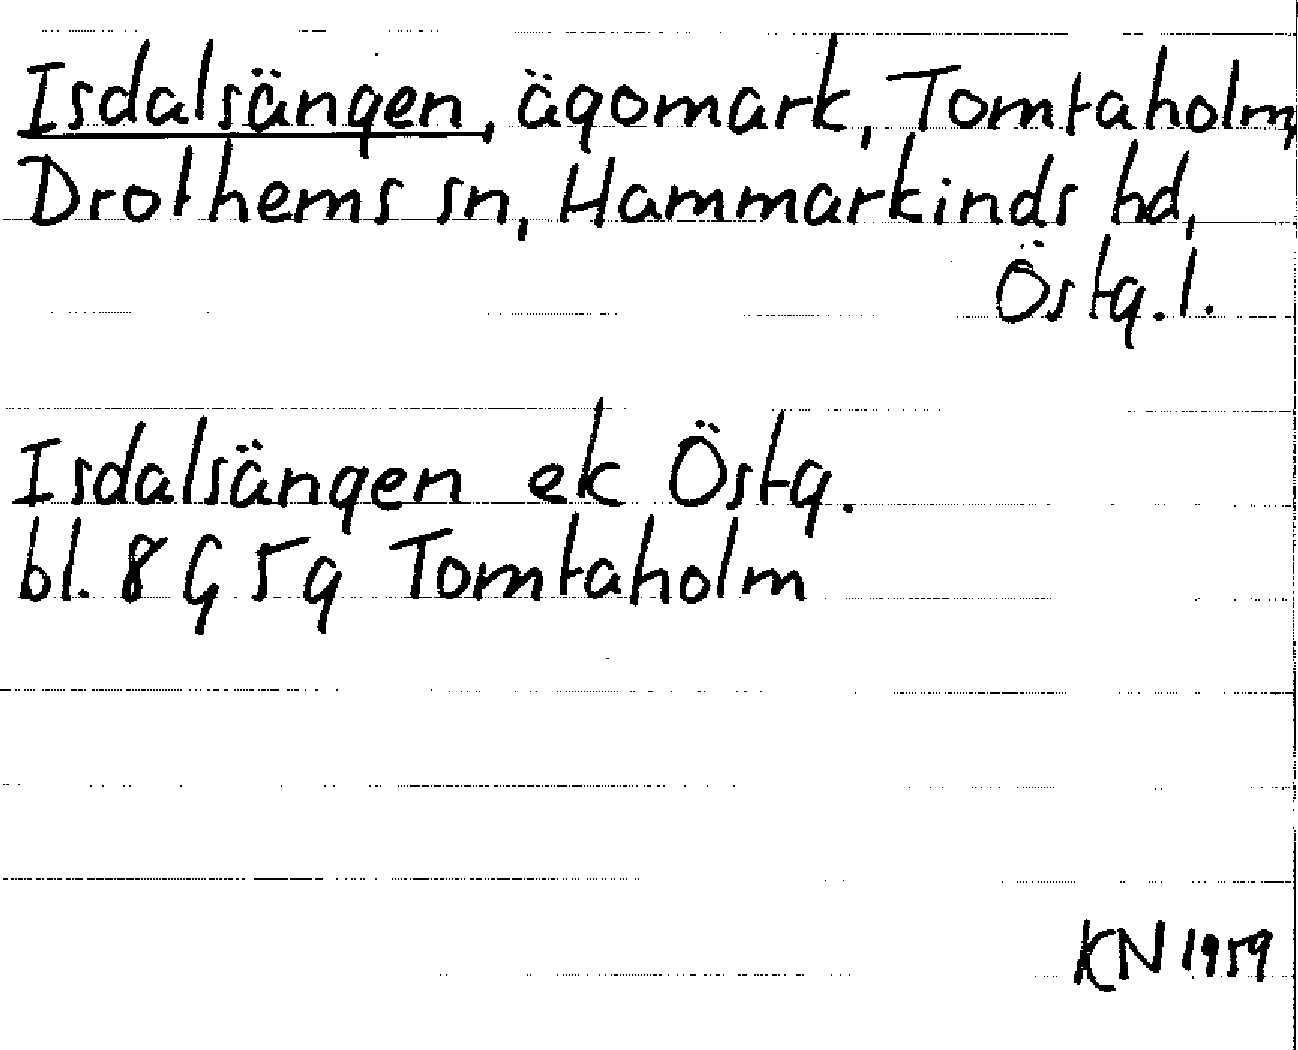 Isdalsängen, ägomark, Tomtaholm,
Drothems sn, Hammarkinds hd,
Östg. l.
Isdalsängen ek Östg.
bl. 8 G 5 g Tomtaholm
KN 1959